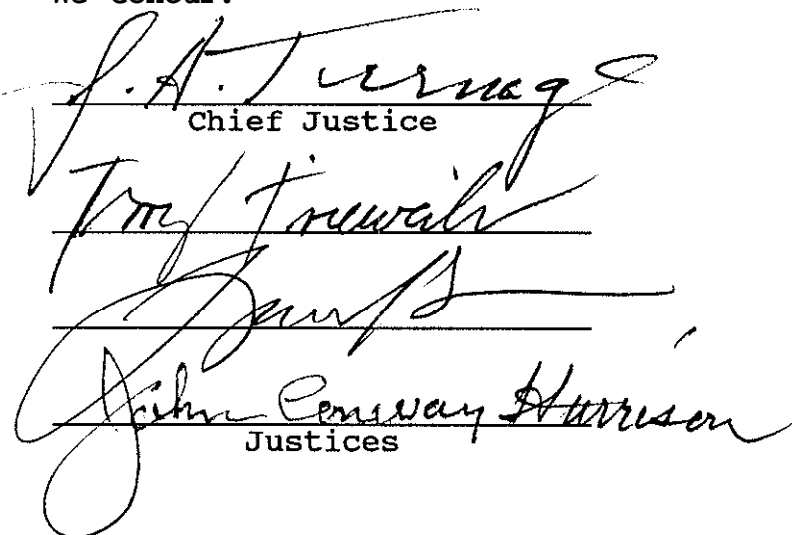 We concur:
J. A. Turnage
Chief Justice
Trieweiler
John Conway Harrison
Justices